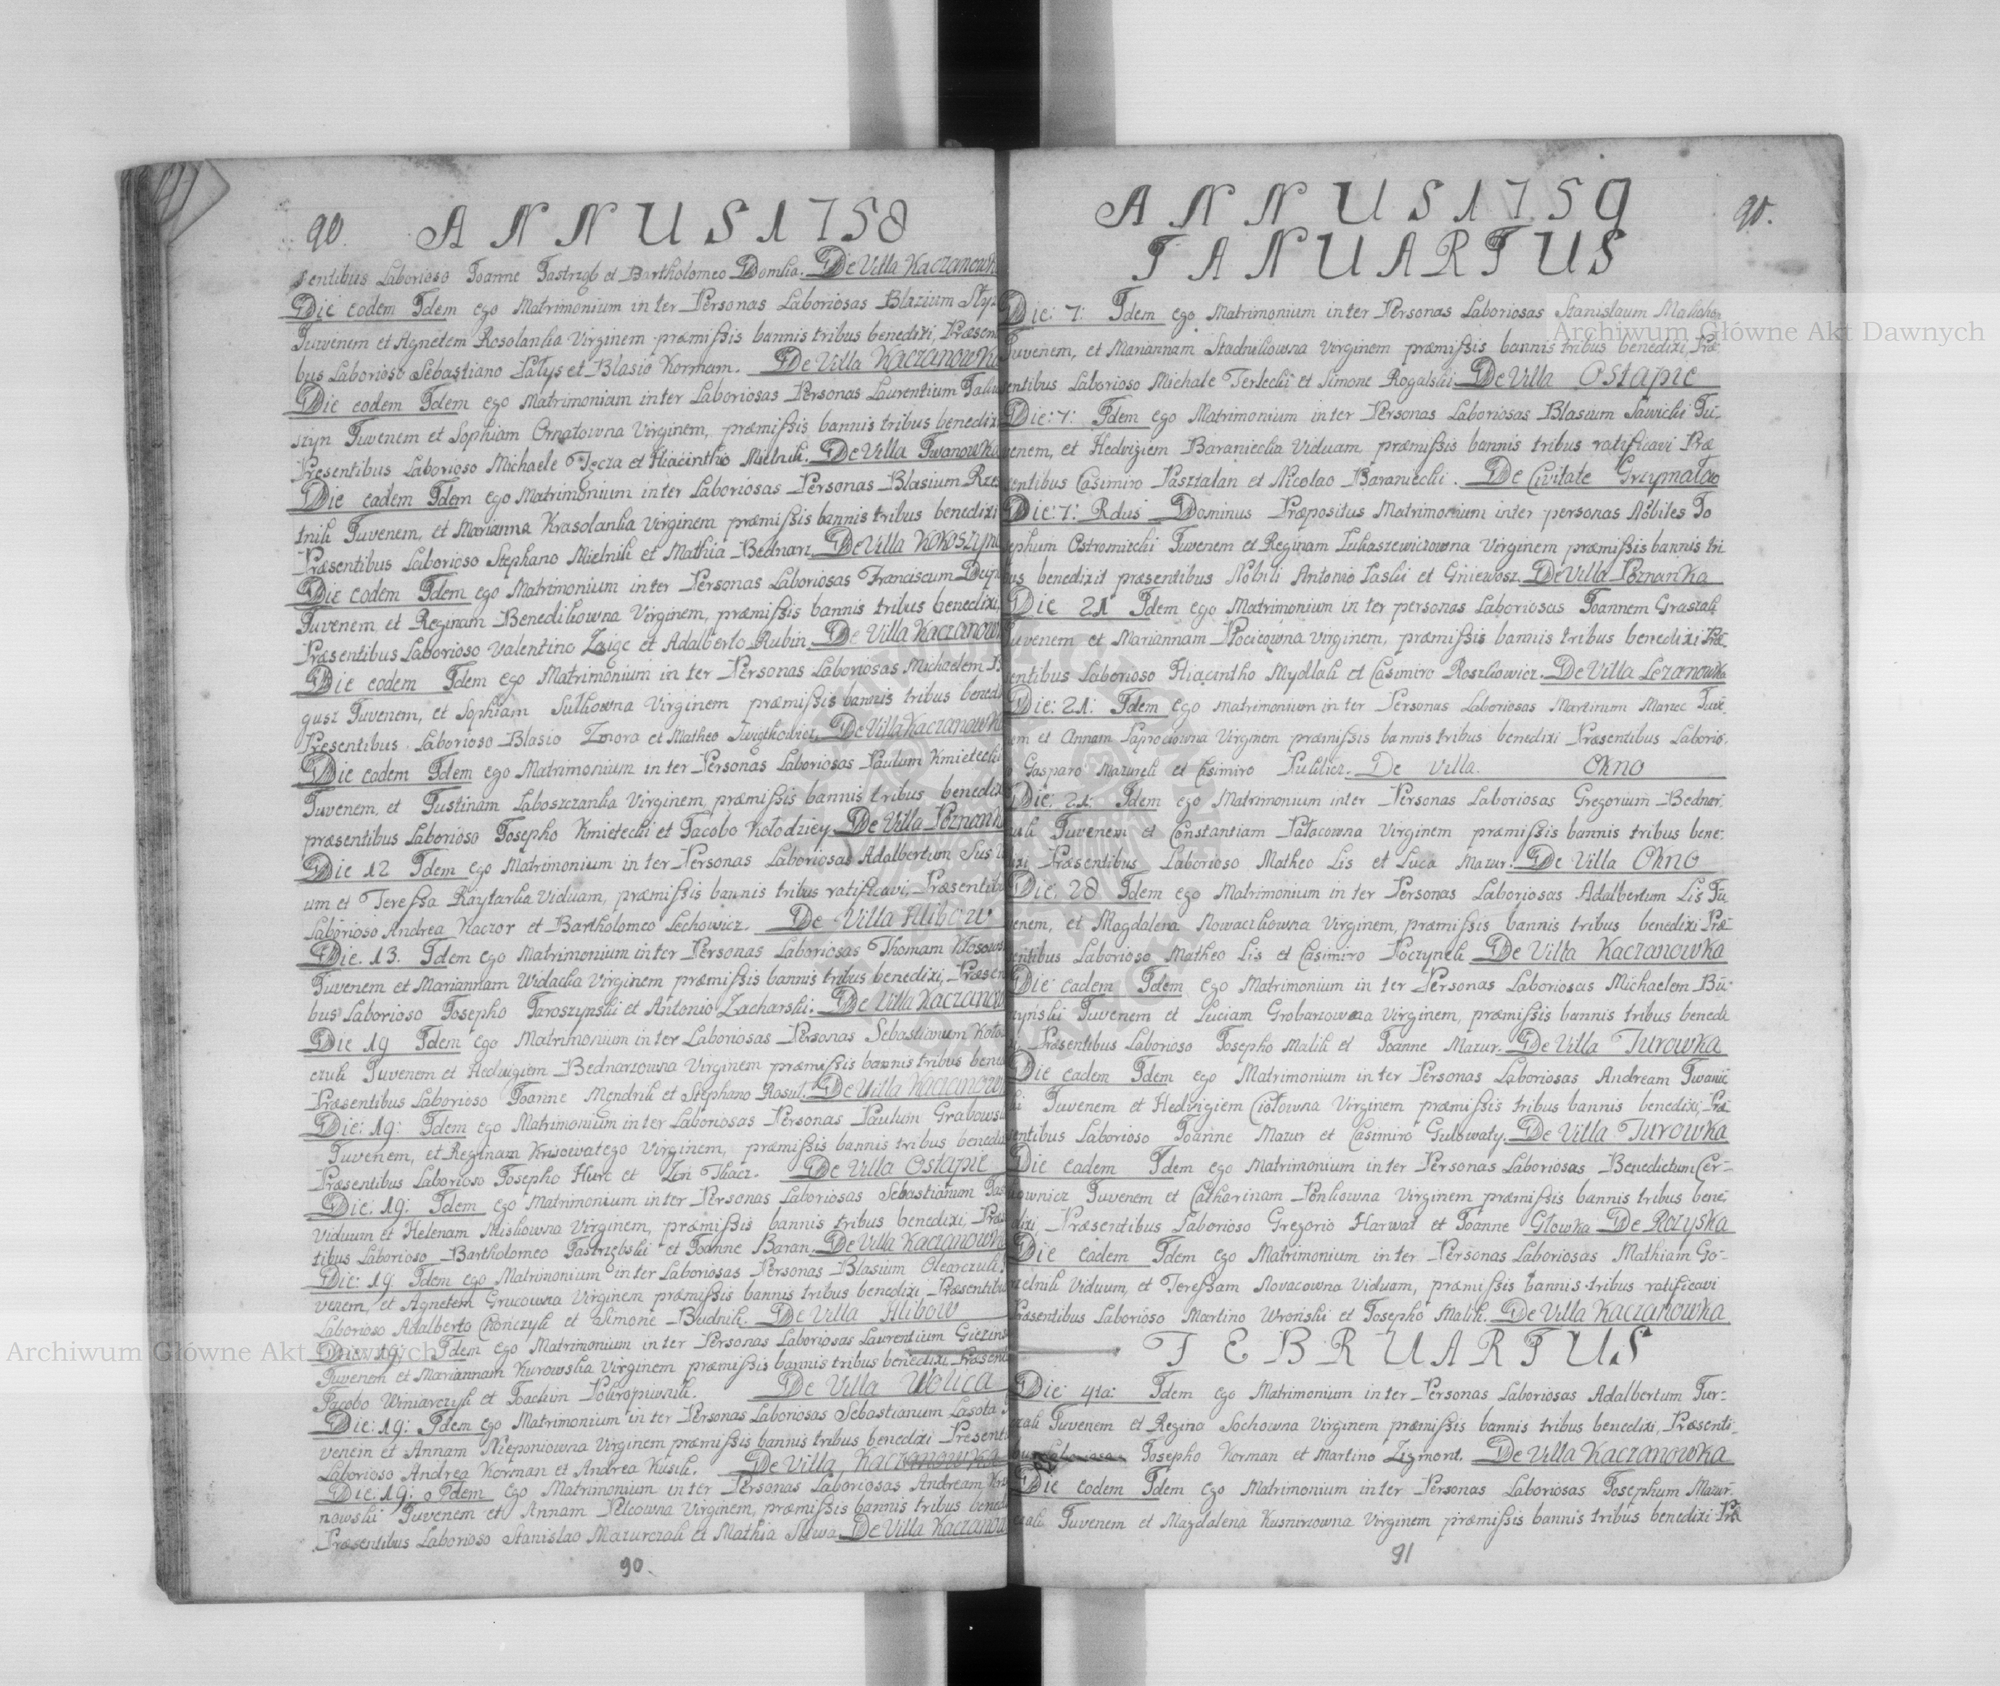 90. ANNUS 1758
sentibus Laborioso Joanne Jastrząb et Bartholomeo Domka. De Villa Kaczanowk
Die eodem Idem ego Matrimonium inter Personas Laboriosas Blasium
Juvenem et Agnetem Rosolanka Virginem præmissis bannis tribus benedixi, Præsen
bus Laborioso Sebastiano Łatys et Blasio Korman. De Villa Kaczanowka
Die eodem Idem ego Matrimonium inter Laboriosas Personas Laurentium
szyn Juvenem et Sophiam Ornatowna Virginem, præmissis bannis tribus benedixi
Præsentibus Laborioso Michaele Tęcza et Hiacintho Mielnik. De Villa Iwanowka
Die eadem Idem ego Matrimonium inter Laboriosas Personas Blasium
tnik Juvenem, et Marianna Krasolanka Virginem præmissis bannis tribus benedixi
Præsentibus Laborioso Stephano Mielnik et Mathia Bednarz. De Villa Kokoszyn
Die eodem Idem ego Matrimonium inter Personas Laboriosas Franciscum
Juvenem, et Reginam Benedikowna Virginem, præmissis bannis tribus benedixi,
Præsentibus Laborioso Valentino et Adalberto Rubin. De Villa Kaczanow
Die eodem Idem ego Matrimonium inter Personas Laboriosas Michaelem
gusz Juvenem, et Sophiam Sulkowna Virginem præmissis bannis tribus bened
Præsentibus Laborioso Blasio Zmora et Matheo De Villa Kaczanowk
Die eadem Idem ego Matrimonium inter Personas Laboriosas Paulum Kmieteck
Juvenem, et Justinam Laboszczanka Virginem, præmissis bannis tribus benedixi
præsentibus Laborioso Josepho Kmietecki et Jacobo Kołodziey. De Villa Poznank
Die 12 Idem ego Matrimonium inter Personas Laboriosas Adalbertum Sus
um et Teressa Raytarka Viduam, præmissis bannis tribus ratificavi, Præsentib
Laborioso Andrea Kaczor et Bartholomeo Lechowicz. De Villa Hlibow
Die. 13. Idem ego Matrimonium inter Personas Laboriosas Thomam
Juvenem et Mariannam Widacka Virginem præmissis bannis tribus benedixi, Præsen
bus Laborioso Josepho Jaroszynski et Antonio Zacharski. De Villa Kaczanow
Die 19 Idem ego Matrimonium inter Laboriosas Personas Sebastianum
czuk Juvenem et Hedvigiem Bednarzowna Virginem præmissis bannis tribus bene
Præsentibus Laborioso Joanne Mendrik et Stephano Rosul. De Villa Kaczanow
Die: 19: Idem ego Matrimonium inter Laboriosas Personas Paulum Grabowsk
Juvenem, et Reginam Krisowatego Virginem, præmissis bannis tribus bened
Præsentibus Laborioso Josepho Hurc et Tkacz. De Villa Ostapie
Die: 19: Idem ego Matrimonium inter Personas Laboriosas Sebastianum
Viduum et Helenam Miskowna Virginem, præmissis bannis tribus benedixi, Præs
tibus Laborioso Bartholomeo Jastrzębski et Joanne Baran. De Villa Kaczanowka
Die: 19 Idem ego Matrimonium inter Laboriosas Personas Blasium Olearczuk
venem, et Agnetem Grucowna Virginem præmissis bannis tribus benedixi, Præsentibus
Laborioso Adalberto Chończyk et Simone Budnik. De Villa Hlibow
Die: 19: Idem ego Matrimonium inter Personas Laboriosas Laurentium
Juvenem et Mariannam Kurowska Virginem præmissis bannis tribus benedixi, Præsen
Jacobo Winiarczyk et Joachim Pokropiwnik. De Villa Wolica
Die: 19: Idem ego Matrimonium inter Personas Laboriosas Sebastianum Lasota
venem et Annam Nieponiowna Virginem præmissis bannis tribus benedixi Præsent
Laborioso Andrea Korman et Andrea Kusik. De Villa Kaczanowka
Die: 19: Idem ego Matrimonium inter Personas Laboriosas Andream
nowski Juvenem et Annam Pelcowna Virginem, præmissis bannis tribus bened
Præsentibus Laborioso Stanislao Mazurczak et Mathia Sliwa. De Villa Kaczanow
90.
ANNUS 1759 90.
IANUARIUS
Die: 7: Idem ego Matrimonium inter Personas Laboriosas Stanislaum
Juvenem, et Mariannam Stadnikowna Virginem præmissis bannis tribus benedixi, Præ
sentibus Laborioso Michale Terlecki et Simone Rogalski. De Villa Ostapie
Die: 7: Idem ego Matrimonium inter Personas Laboriosas Blasium Sawicki Ju-
venem, et Hedvigiem Baraniecka Viduam, præmissis bannis tribus ratificavi Præ
sentibus Casimiro Pasztalan et Nicolao Baraniecki. De Civitate Grzymałao
Die: 7: Rdus Dominus Præpositus Matrimonium inter personas Nobiles Jo
sephum Ostromiecki Juvenem et Reginam Lukaszewiczowna Virginem præmissis bannis tri
bus benedixit præsentibus Nobili Antonio Laski et Gniewosz. De Villa Poznanka
Die 21 Idem ego Matrimonium inter personas Laboriosas Joannem
Juvenem et Mariannam Pociecowna virginem, præmissis bannis tribus benedixi Præ-
sentibus Laborioso Hiacintho Mydlak et Casimiro Roszkowicz. De Villa Lezanowka
Die: 21: Idem ego Matrimonium inter Personas Laboriosas Martinum Marzec Juve
nem et Annam Paprociowna Virginem præmissis bannis tribus benedixi Præsentibus Laborio.
Gasparo Mazurek et Casimiro De Villa. Okno
Die: 21: Idem ego Matrimonium inter Personas Laboriosas Gregorium Bednar.
Juvenem et Constantiam Pałacowna Virginem præmissis bannis tribus bene:
dixi Præsentibus Laborioso Matheo Lis et Luca Mazur. De Villa Okno
Die: 28 Idem ego Matrimonium inter Personas Laboriosas Adalbertum Lis Ju
venem, et Magdalena Nowaczkowna Virginem, præmissis bannis tribus benedixi Præ-
sentibus Laborioso Matheo Lis et Casimiro Poczynek De Villa Kaczanowka
Die eadem Idem ego Matrimonium inter Personas Laboriosas Michaelem Bu-
czynski Juvenem et Luciam Grobarzowna Virginem, præmissis bannis tribus bened
Præsentibus Laborioso Josepho Malik et Joanne Mazur. De Villa Turowka
Die eadem Idem ego Matrimonium inter Personas Laboriosas Andream Iwanic
ki Juvenem et Hedvigiem Ciołowna Virginem præmissis tribus bannis benedixi, Præ-
sentibus Laborioso Joanne Mazur et Casimiro Gulowaty. De Villa Turowka
Die eadem Idem ego Matrimonium inter Personas Laboriosas Benedictum Cer-
kownicz Juvenem et Catharinam Penkowna Virginem præmissis bannis tribus bene
dixi Præsentibus Laborioso Gregorio Harwat et Joanne Głowka De Rozyska
Die eadem Idem ego Matrimonium inter Personas Laboriosas Mathiam Go-
rzelnik Viduum, et Teressam Novacowna Viduam, præmissis bannis tribus ratificavi
Præsentibus Laborioso Martino Wroński et Josepho Malik. De Villa Kaczanowka
FEBRUARIUS
Die 4ta: Idem ego Matrimonium inter Personas Laboriosas Adalbertum Tur-
czak Juvenem et Regina Sochowna Virginem præmissis bannis tribus benedixi, Præsenti-
bus Josepho Korman et Martino Zigmont. De Villa Kaczanowka
Die eodem Idem ego Matrimonium inter Personas Laboriosas Josephum Mazur-
czak Juvenem et Magdalena Kusnirzowna Virginem præmissis bannis tribus benedixi Præ
91
Archiwum Główne Akt Dawnych
Archiwum Główne Akt Dawnych